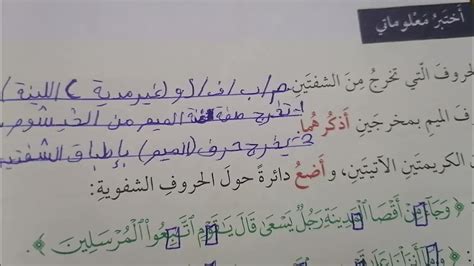 أَختَبِرُ مَعْلوماتي
الحروفَ الّتي تخرجُ مِنَ الشفتَينِ. م/ب/ف/و (غير مدية) (اللينة
ف الميمِ بمخرجينِ أَذكُرهُما. 1- تخرج صفة الغنة الميم من الخيشوم
2- يخرج حرف (الميم) بإطباق الشفتين
الكريمتَينِ الآتيتَينِ، و أَضعُ دائرةً حولَ الحروفِ الشفويةِ:
﴿ وَجَآءَ مِنْ أَقْصَا ٱلْمَدِينَةِ رَجُلٌ يَسْعَىٰ قَالَ يَـٰقَوْمِ ٱتَّبِعُوا۟ ٱلْمُرْسَلِينَ ﴾.
﴿ وَمَآ أَنزَلْنَا عَلَىٰ